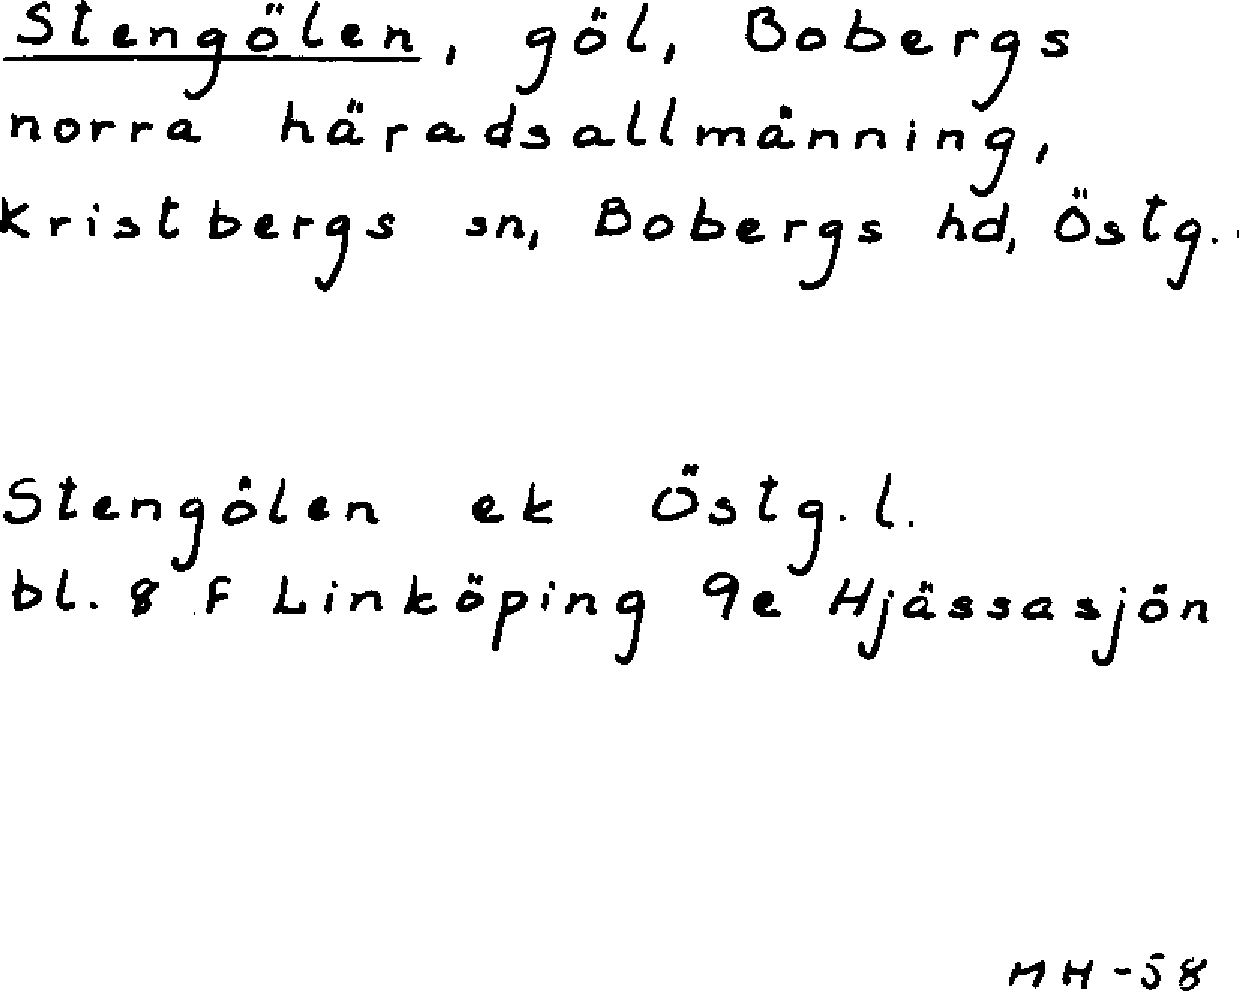 Stengölen, göl, Bobergs
norra häradsallmänning,
Kristbergs sn, Bobergs hd, Östg..
Stengölen ek Östg. l.
bl. 8 F Linköping 9e Hjässasjön
MH-58